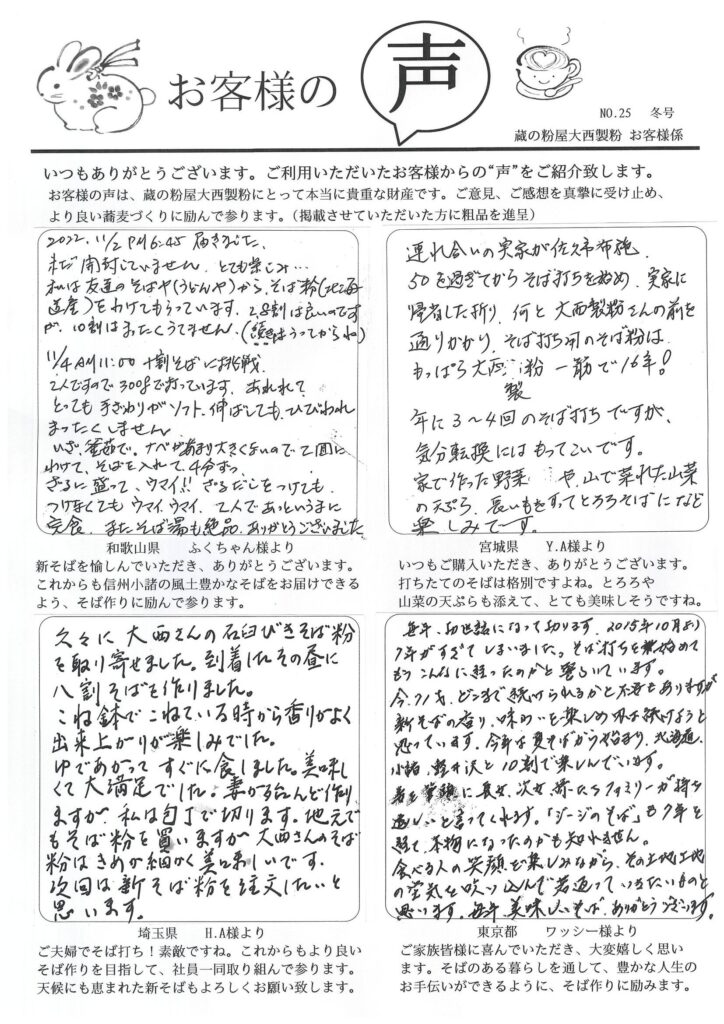 お客様の 声
NO.25 冬号
蔵の粉屋大西製粉 お客様係
いつもありがとうございます。ご利用いただいたお客様からの“声”をご紹介致します。
お客様の声は、蔵の粉屋大西製粉にとって本当に貴重な財産です。ご意見、ご感想を真摯に受け止め、
より良い蕎麦づくりに励んで参ります。（掲載させていただいた方に粗品を進呈）
2022.11/2 PM6:45 届きました、
まだ開封していません、とても楽しみ…
私は友達のそばや(うどんや)から、そば粉(北海
道産)をわけてもらっています、2,8割は良いのです
が、10割はまったくうてません、
11/4 AM11:00 十割そばに挑戦、
2人ですので300gで打っています、あれれて
とっても手ざわりがソフト、伸ばしても、ひびわれ
まったくしません
いざ、釜茹で、ナベがあまり大きくないので2回に
わけて、そばを入れて、4分ずつ
ざるに盛って、ウマイ!! ざるだしをつけても
つけなくてもウマイ、ウマイ、2人であっというまに
完食、またそば湯も絶品、ありがとうございました
和歌山県 ふくちゃん様より
新そばを愉しんでいただき、ありがとうございます。
これからも信州小諸の風土豊かなそばをお届けできる
よう、そば作りに励んで参ります。
連れ合いの実家が佐久市布施、
50を過ぎてからそば打ちを始め、実家に
帰省した折り、何と大西製粉さんの前を
通りかかり、そば打ち用のそば粉は、
もっぱら大西製粉一筋で16年!
年に3～4回のそば打ちですが、
気分転換にはもってこいです。
家で作った野菜や、山で菜れた山菜
の天ぷら、長いもをすってとろろそばになど
楽しみです。
宮城県 Y.A様より
いつもご購入いただき、ありがとうございます。
打ちたてのそばは格別ですよね。とろろや
山菜の天ぷらも添えて、とても美味しそうですね。
久々に大西さんの石臼びきそば粉
を取り寄せました。到着したその昼に
八割そばを作りました。
こね鉢でこねている時から香りがよく
出来上がりが楽しみでした。
ゆであがってすぐに食しました。美味し
くて大満足でした。妻がほとんど作り
ますが、私は包丁で切ります。地元で
もそば粉を買いますが大西さんのそば
粉はきめが細かく美味しいです。
次回は新そば粉を注文したいと
思います。
埼玉県 H.A様より
ご夫婦でそば打ち！素敵ですね。これからもより良い
そば作りを目指して、社員一同取り組んで参ります。
天候にも恵まれた新そばもよろしくお願い致します。
毎年、お世話になって切ります、2015年10月より
7年がすぎてしまいました。そば打ちを始めて
もうこんなに経ったのかと驚いています。
今、71才、どこまで続けられるかと不安もありますが
新そばの香り、味わいを楽しめれば続けようと
思っています。今年は夏そばから始まり、北海道、
小諸、軽井沢と10割で楽しんでいます。
長女、次女、ファミリーが待ち
遠しいと言ってくれます。「ジージのそば」も7年を
経て、本物になったのかも知れません。
食べる人の笑顔を楽しみながら、その土地土地
の空気を吹い込んで若返っていきたいものと
思います。毎年、美味しいそば、ありがとうございます。
東京都 ワッシー様より
ご家族皆様に喜んでいただき、大変嬉しく思い
ます。そばのある暮らしを通して、豊かな人生の
お手伝いができるように、そば作りに励みます。